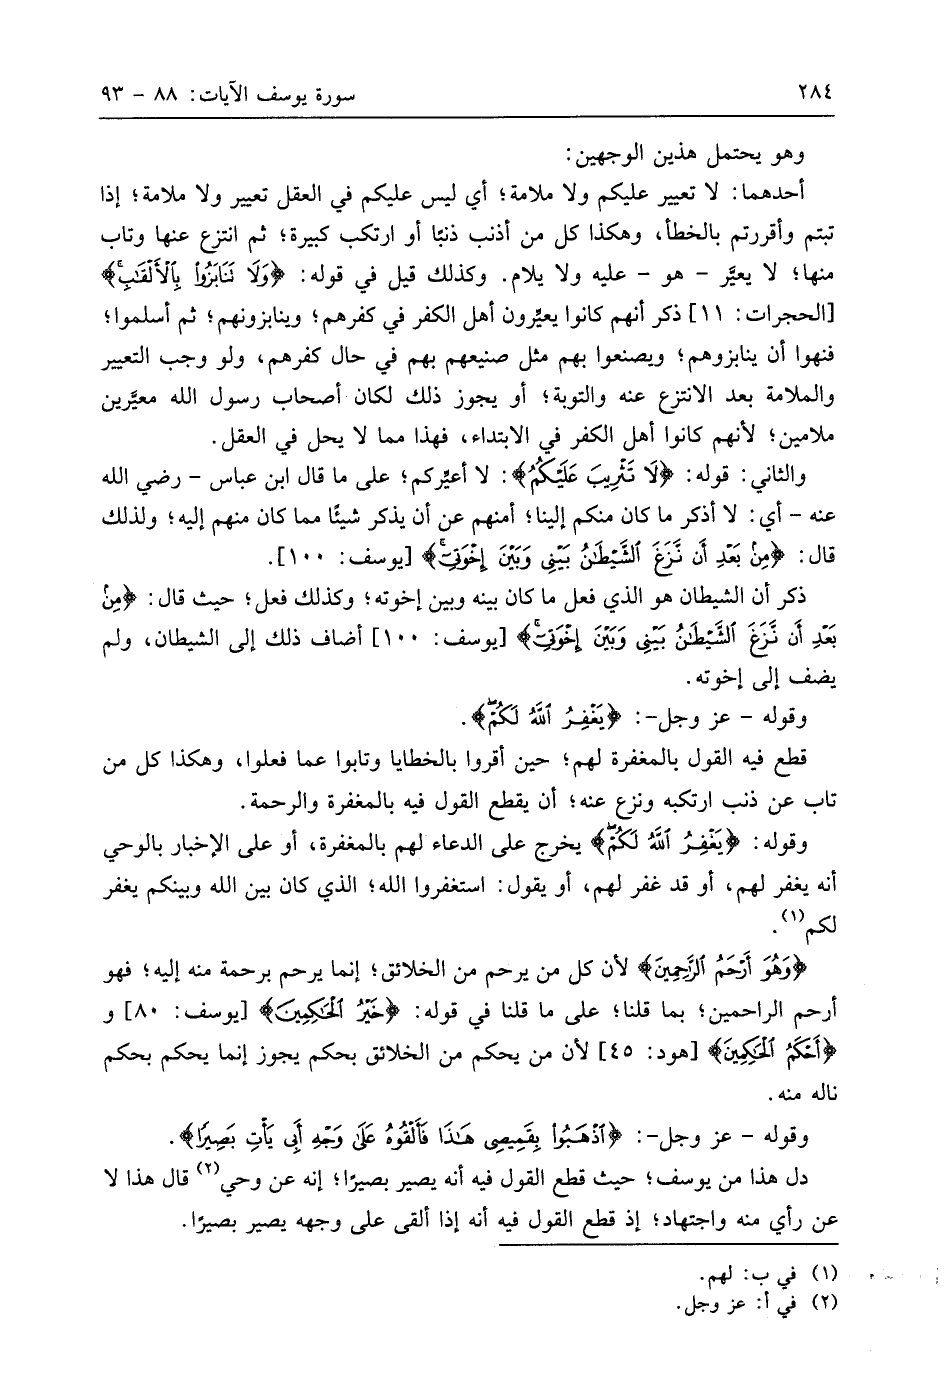 ٢٨٤ سورة يوسف الآيات: ٨٨ - ٩٣
وهو يحتمل هذين الوجهين:
أحدهما: لا تعيير عليكم ولا ملامة؛ أي ليس عليكم في العقل تعيير ولا ملامة؛ إذا
تبتم وأقررتم بالخطأ، وهكذا كل من أذنب ذنبًا أو ارتكب كبيرة؛ ثم انتزع عنها وتاب
منها؛ لا يعيَّر - هو - عليه ولا يلام. وكذلك قيل في قوله: ﴿وَلَا تَنَابَزُوا۟ بِٱلْأَلْقَٰبِۚ﴾
[الحجرات: ١١] ذكر أنهم كانوا يعيِّرون أهل الكفر في كفرهم؛ وينابزونهم؛ ثم أسلموا؛
فنهوا أن ينابزوهم؛ ويصنعوا بهم مثل صنيعهم بهم في حال كفرهم، ولو وجب التعيير
والملامة بعد الانتزع عنه والتوبة؛ أو يجوز ذلك لكان أصحاب رسول الله معيَّرين
ملامين؛ لأنهم كانوا أهل الكفر في الابتداء، فهذا مما لا يحل في العقل.
والثاني: قوله: ﴿لَا تَثْرِيبَ عَلَيْكُمُ﴾: لا أعيِّركم؛ على ما قال ابن عباس - رضي الله
عنه - أي: لا أذكر ما كان منكم إلينا؛ أمنهم عن أن يذكر شيئًا مما كان منهم إليه؛ ولذلك
قال: ﴿مِنۢ بَعْدِ أَن نَّزَغَ ٱلشَّيْطَٰنُ بَيْنِى وَبَيْنَ إِخْوَتِىٓۚ﴾ [يوسف: ١٠٠].
ذكر أن الشيطان هو الذي فعل ما كان بينه وبين إخوته؛ وكذلك فعل؛ حيث قال: ﴿مِنۢ
بَعْدِ أَن نَّزَغَ ٱلشَّيْطَٰنُ بَيْنِى وَبَيْنَ إِخْوَتِىٓۚ﴾ [يوسف: ١٠٠] أضاف ذلك إلى الشيطان، ولم
يضف إلى إخوته.
وقوله - عز وجل-: ﴿يَغْفِرُ ٱللَّهُ لَكُمْۖ﴾.
قطع فيه القول بالمغفرة لهم؛ حين أقروا بالخطايا وتابوا عما فعلوا، وهكذا كل من
تاب عن ذنب ارتكبه ونزع عنه؛ أن يقطع القول فيه بالمغفرة والرحمة.
وقوله: ﴿يَغْفِرُ ٱللَّهُ لَكُمْۖ﴾ يخرج على الدعاء لهم بالمغفرة، أو على الإخبار بالوحي
أنه يغفر لهم، أو قد غفر لهم، أو يقول: استغفروا الله؛ الذي كان بين الله وبينكم يغفر
لكم(١).
﴿وَهُوَ أَرْحَمُ ٱلرَّٰحِمِينَ﴾ لأن كل من يرحم من الخلائق؛ إنما يرحم برحمة منه إليه؛ فهو
أرحم الراحمين؛ بما قلنا؛ على ما قلنا في قوله: ﴿خَيْرُ ٱلْحَٰكِمِينَ﴾ [يوسف: ٨٠] و
﴿أَحْكَمُ ٱلْحَٰكِمِينَ﴾ [هود: ٤٥] لأن من يحكم من الخلائق بحكم يجوز إنما يحكم بحكم
ناله منه.
وقوله - عز وجل-: ﴿ٱذْهَبُوا۟ بِقَمِيصِى هَٰذَا فَأَلْقُوهُ عَلَىٰ وَجْهِ أَبِى يَأْتِ بَصِيرًا﴾.
دل هذا من يوسف؛ حيث قطع القول فيه أنه يصير بصيرًا؛ إنه عن وحي(٢) قال هذا لا
عن رأي منه واجتهاد؛ إذ قطع القول فيه أنه إذا ألقى على وجهه يصير بصيرًا.
(١) في ب: لهم.
(٢) في أ: عز وجل.